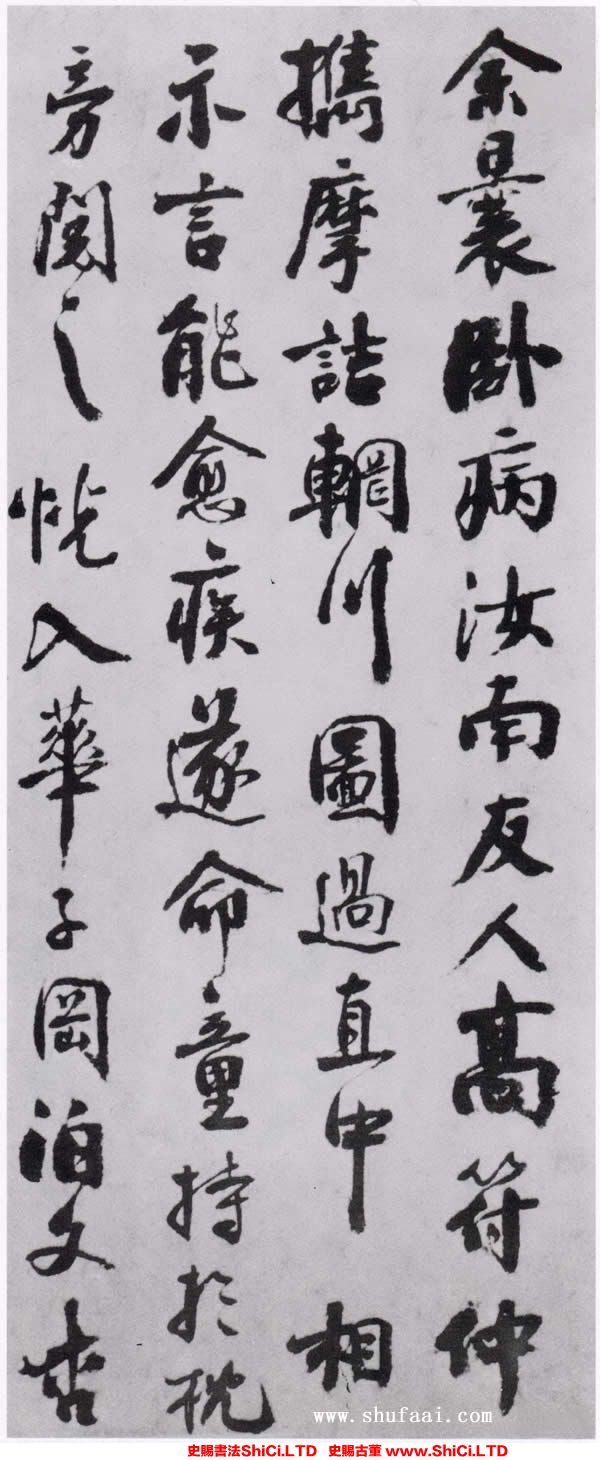 余曩卧病汝南友人高符仲
攜摩詰輞川圖過直中相
示言能愈疾遂命童持於枕
旁閱之恍入華子岡泊文杏
www.shufaai.com
史賜書法ShiCi.LTD 史賜古董 www.ShiCi.LTD